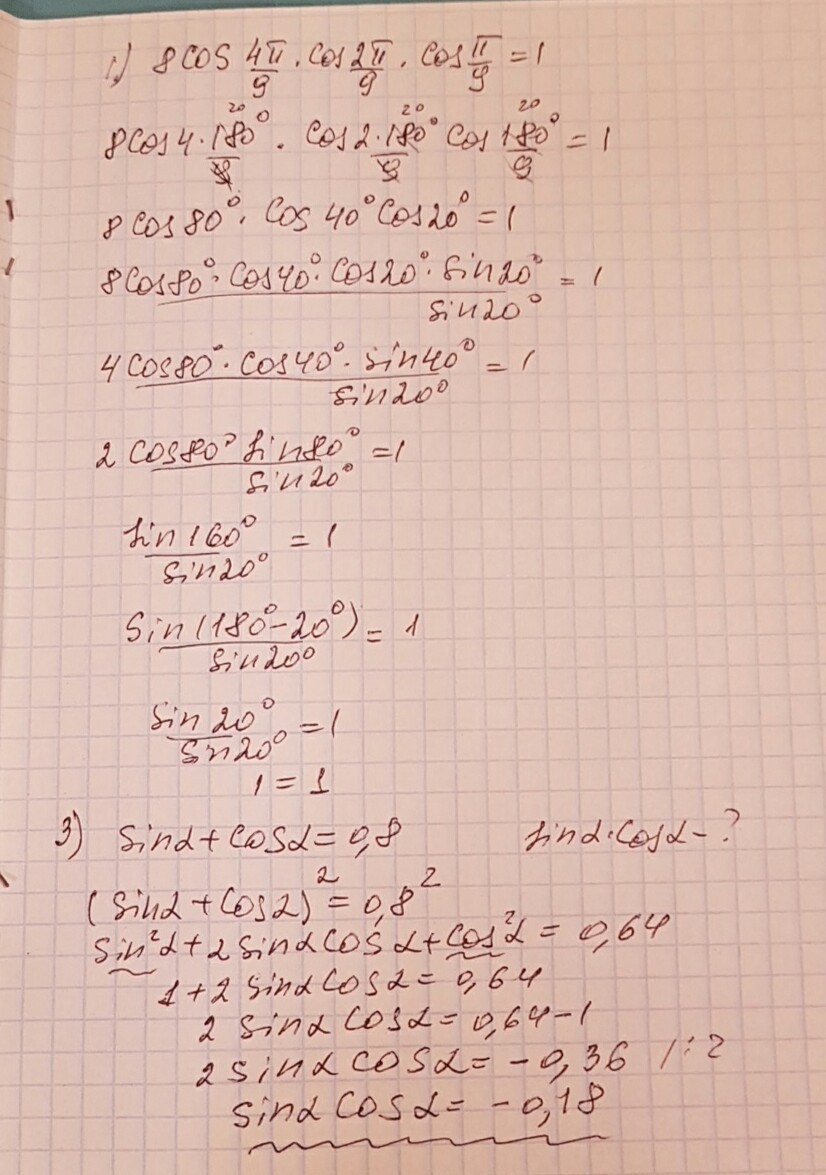 1) 8cos 4π/9 · cos 2π/9 · cos π/9 = 1
8cos 4·180°/9 · cos 2·180°/9 cos 180°/9 = 1
20 20 20
8cos80° · cos40° cos20° = 1
8cos80° · cos40° · cos20° · sin20° / sin20° = 1
4cos80° · cos40° · sin40° / sin20° = 1
2cos80° sin80° / sin20° = 1
sin160° / sin20° = 1
sin(180°-20°) / sin20° = 1
sin20° / sin20° = 1
1 = 1
3) sinα + cosα = 0,8 sinα·cosα - ?
(sinα + cosα)² = 0,8²
sin²α + 2sinαcosα + cos²α = 0,64
1 + 2sinαcosα = 0,64
2sinαcosα = 0,64 - 1
2sinαcosα = -0,36 /:2
sinαcosα = -0,18